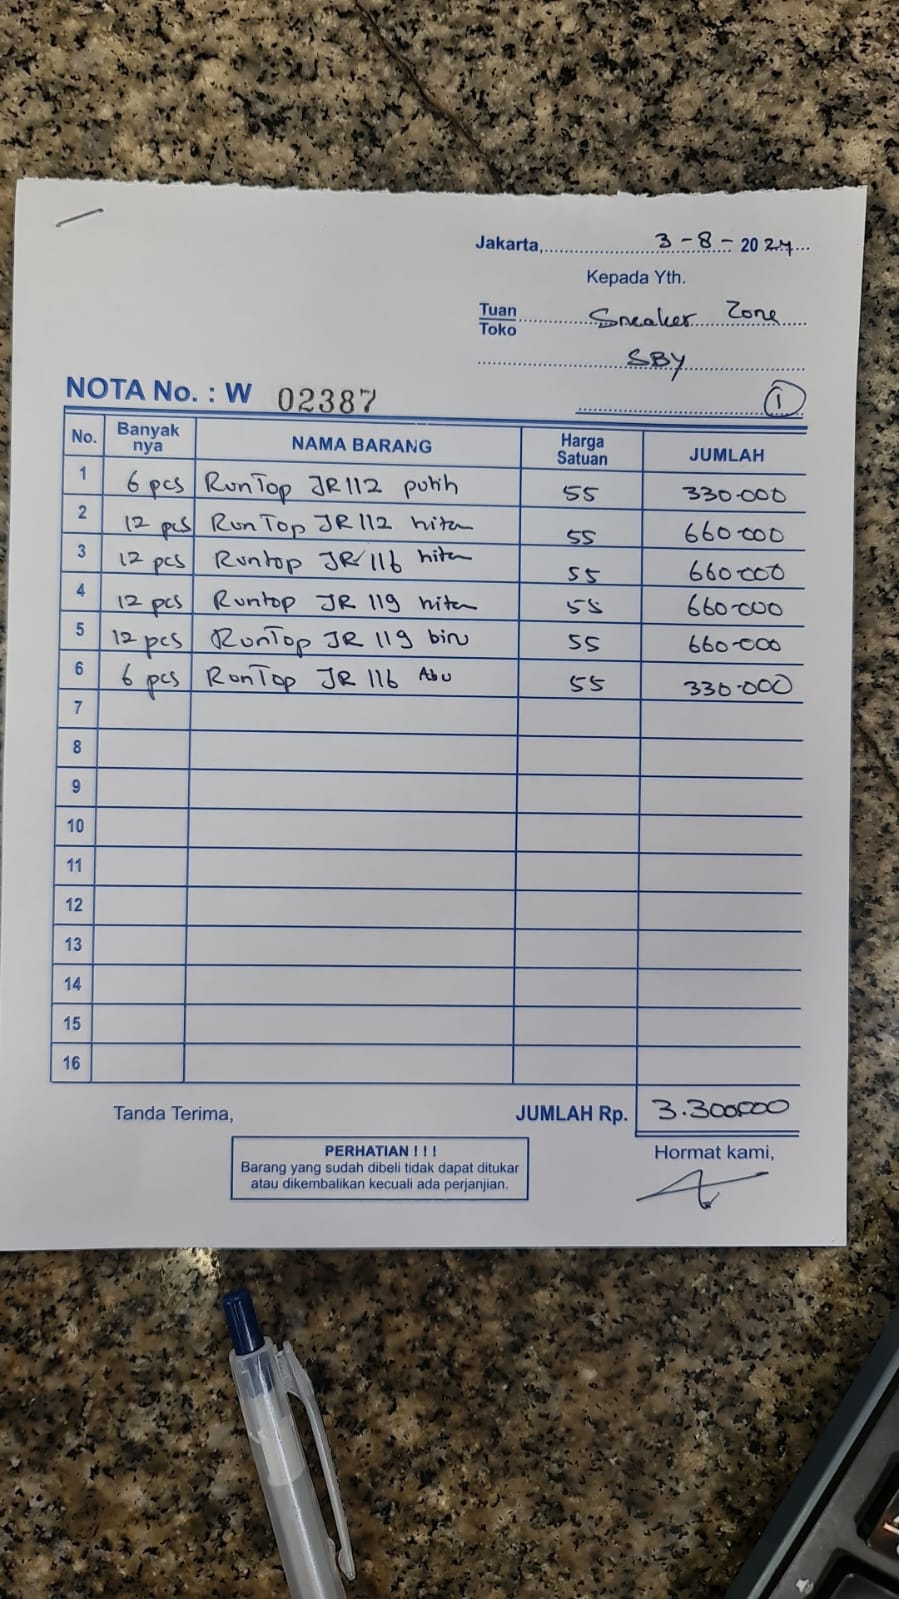 Jakarta, 3-8-2024
Kepada Yth.
Tuan
Toko Sneaker Zone
SBY
NOTA No. : W 02387
1
No. Banyak nya NAMA BARANG Harga Satuan JUMLAH
1 6 pcs RunTop JR 112 putih 55 330.000
2 12 pcs RunTop JR 112 hitam 55 660.000
3 12 pcs Runtop JR 116 hitam 55 660.000
4 12 pcs Runtop JR 119 hitam 55 660.000
5 12 pcs RunTop JR 119 biru 55 660.000
6 6 pcs RunTop JR 116 Abu 55 330.000
7
8
9
10
11
12
13
14
15
16
Tanda Terima, JUMLAH Rp. 3.300.000
PERHATIAN ! ! !
Barang yang sudah dibeli tidak dapat ditukar
atau dikembalikan kecuali ada perjanjian.
Hormat kami,